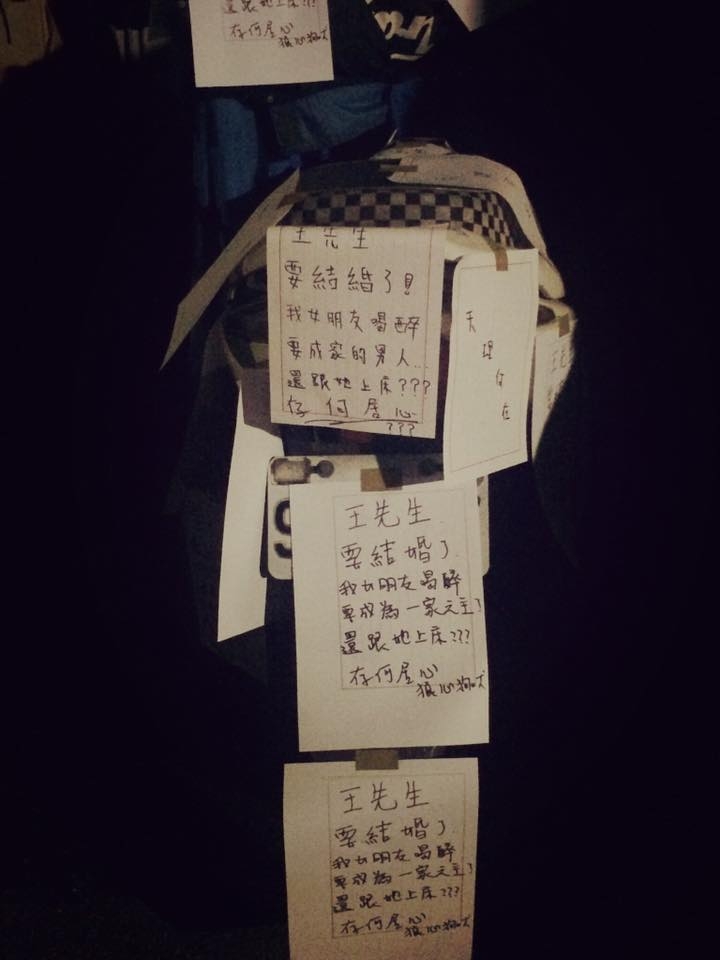 還跟她上床???
存何居心
狼心狗吠
王先生
要結婚了!!
我女朋友喝醉
要成家的男人...
還跟她上床???
存何居心
???
天理何在
王先生
9
王先生
要結婚了
我女朋友喝醉
要成為一家之主了
還跟她上床???
存何居心
狼心狗吠
王先生
要結婚了
我女朋友喝醉
要成為一家之主了
還跟她上床???
存何居心
狼心狗吠